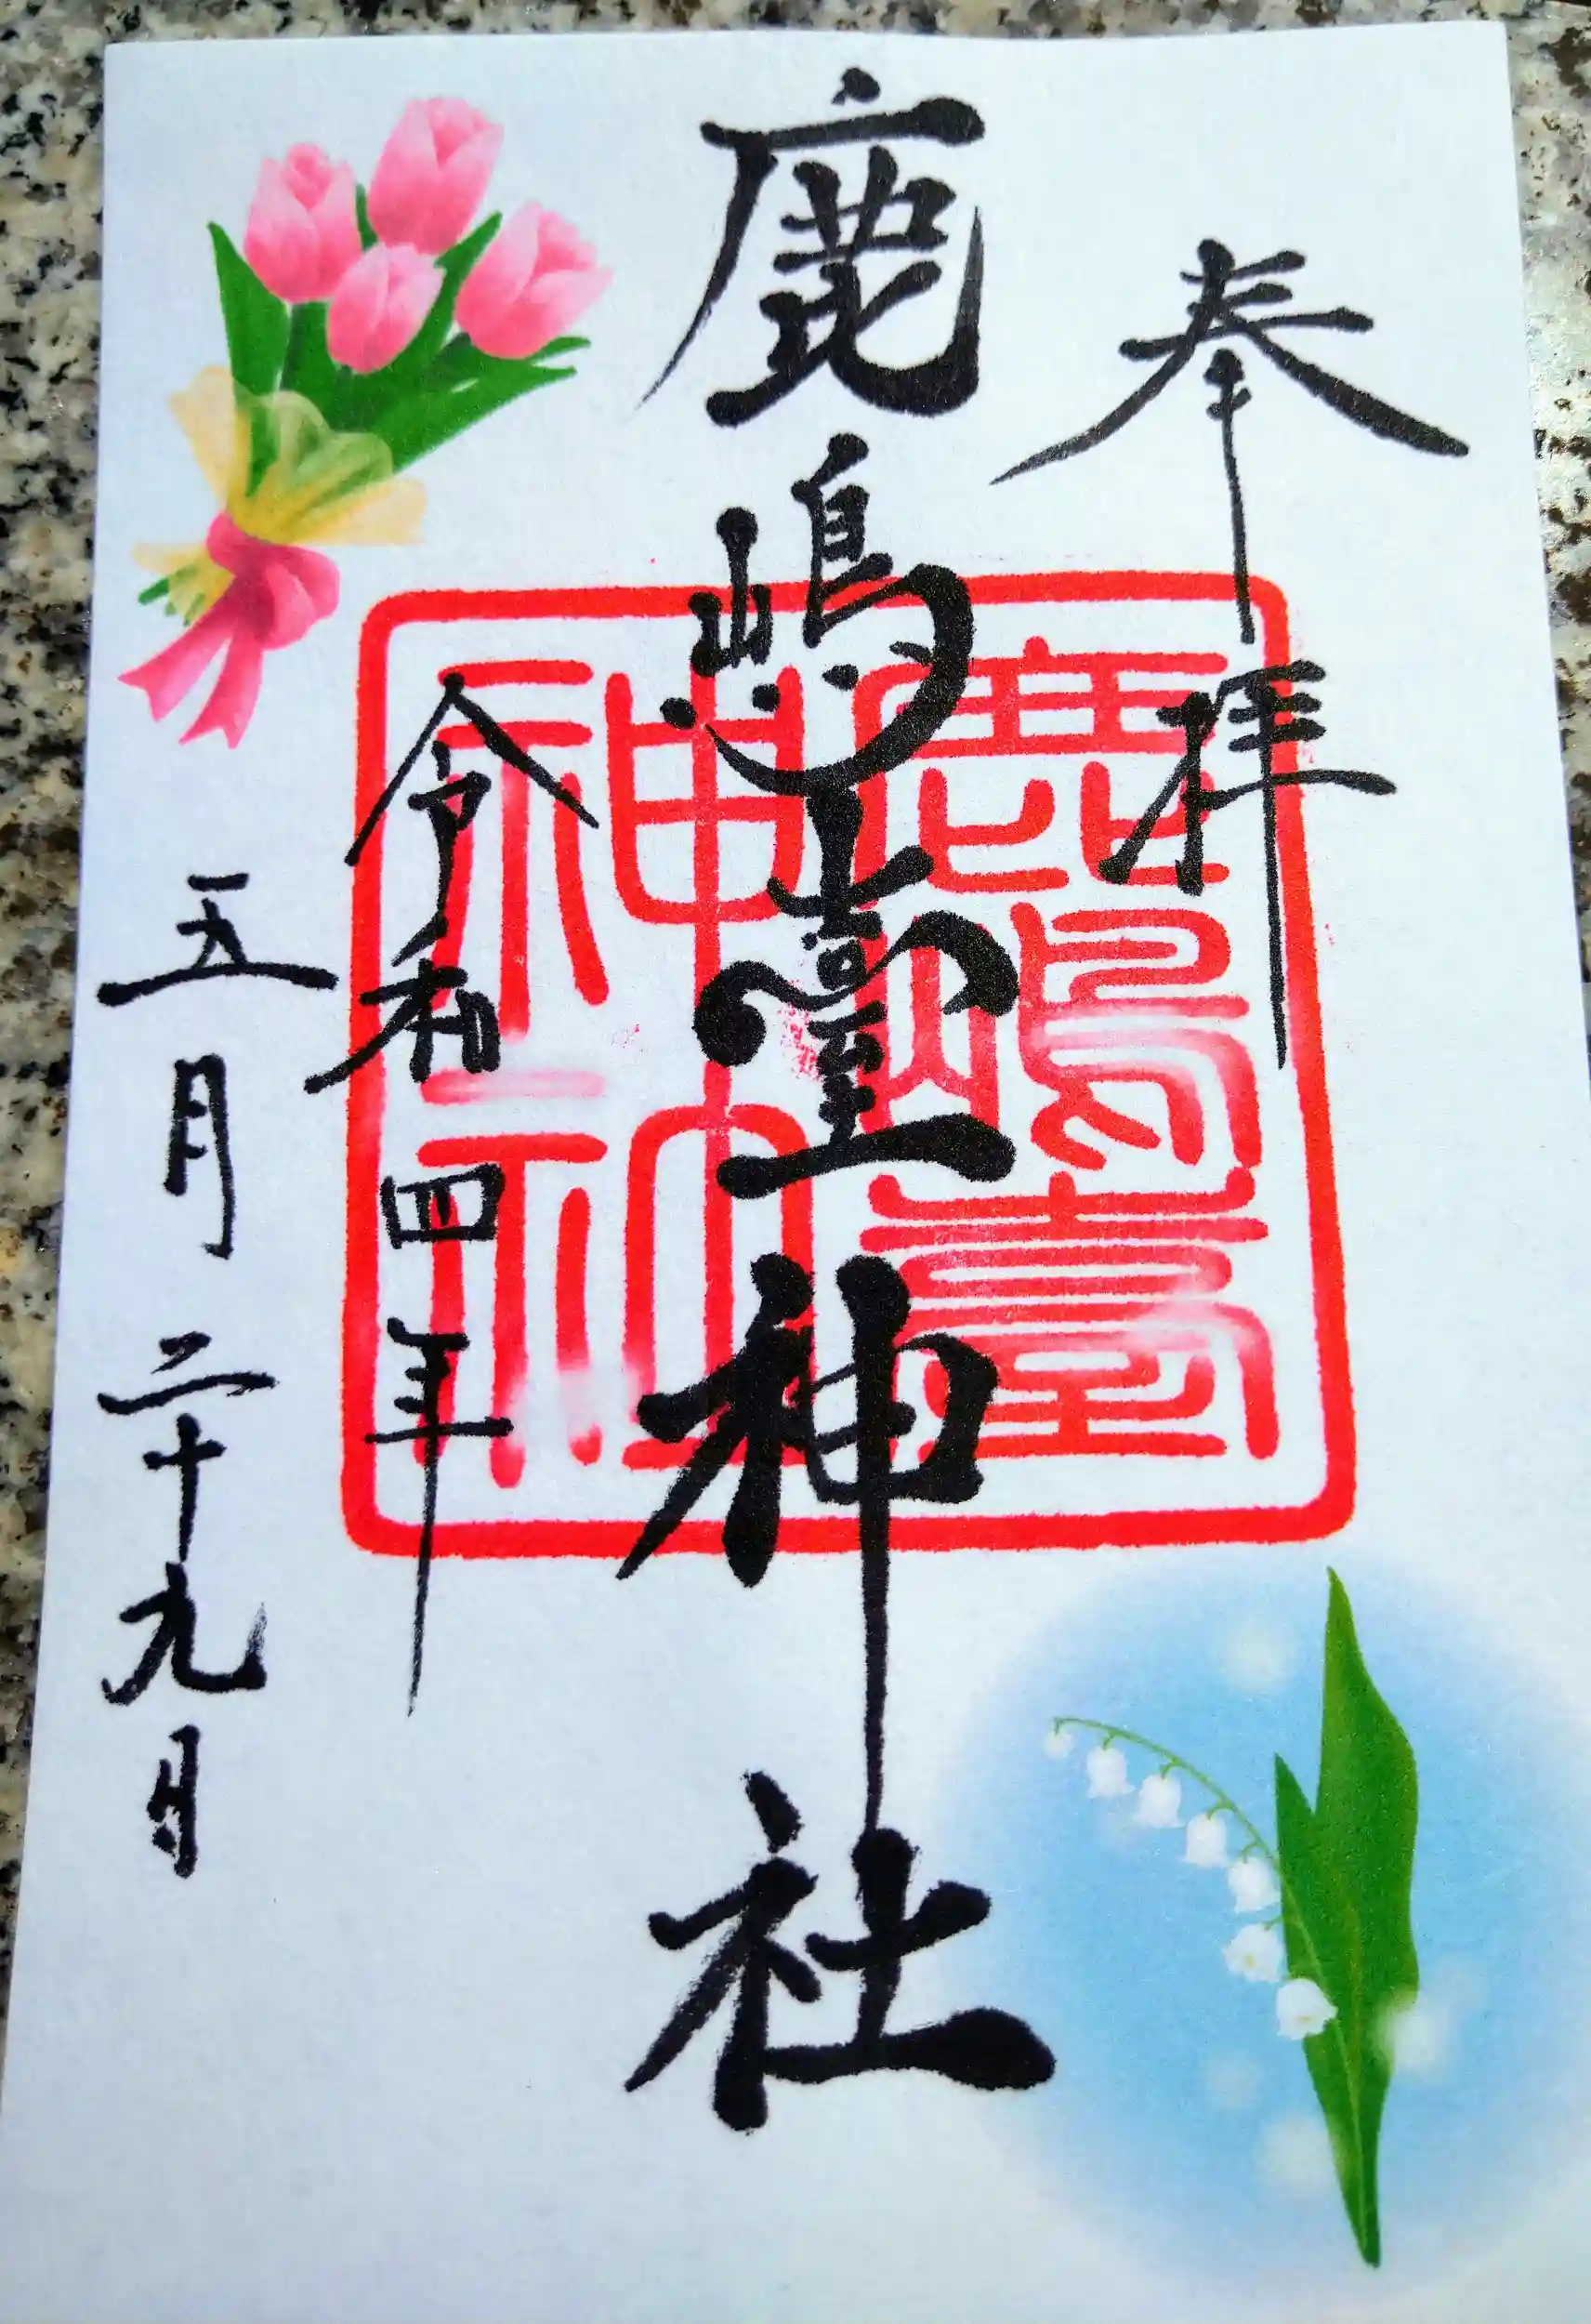 奉拝
鹿嶋臺神社
鹿嶋臺
神社
令和四年
五月二十九日